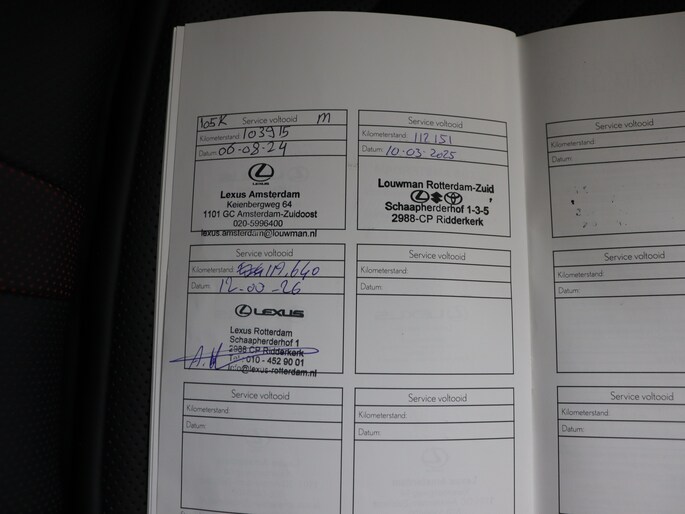 105K Service voltooid M
Kilometerstand: 103915
Datum: 06-08-24
LEXUS
Lexus Amsterdam
Keienbergweg 64
1101 GC Amsterdam-Zuidoost
020-5996400
lexus.amsterdam@louwman.nl
Service voltooid
Kilometerstand: 112151
Datum: 10-03-2025
Louwman Rotterdam-Zuid
Schaapherderhof 1-3-5
2988-CP Ridderkerk
Service voltooid
Kilometerstand:
Datum:
Service voltooid
Kilometerstand: 119.640
Datum: 12-00-26
LEXUS
Lexus Rotterdam
Schaapherderhof 1
2988 CP Ridderkerk
Tel.: 010 - 452 90 01
info@lexus-rotterdam.nl
Service voltooid
Kilometerstand:
Datum:
Service voltooid
Kilometerstand:
Datum:
Service voltooid
Kilometerstand:
Datum:
Service voltooid
Kilometerstand:
Datum:
Service voltooid
Kilometerstand:
Datum: